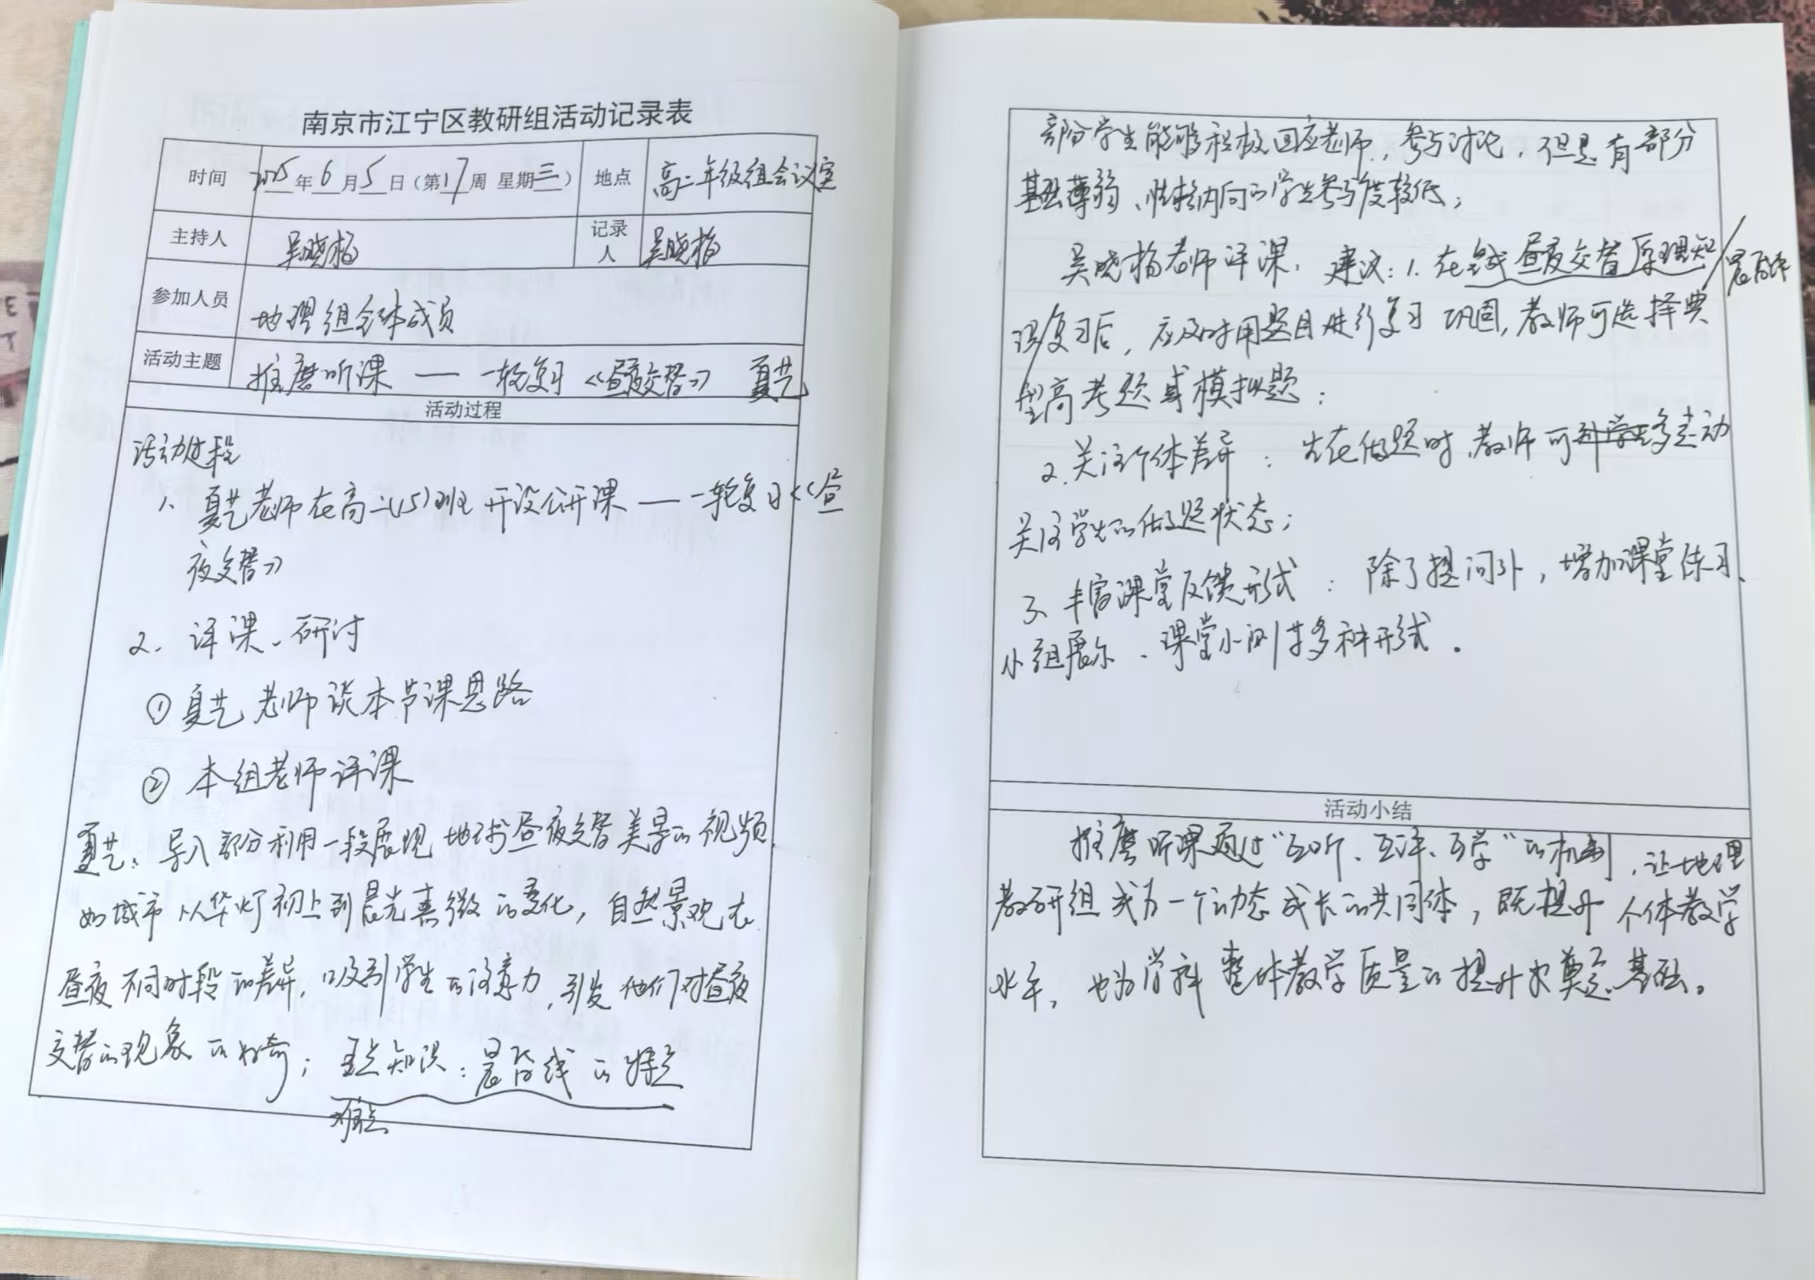 南京市江宁区教研组活动记录表
时间 2025年6月5日(第17周 星期三) 地点 高二年级组会议室
主持人 吴晓杨 记录人 吴晓杨
参加人员 地理组全体成员
活动主题 推磨听课——一轮复习《昼夜交替》 夏艺
活动过程
活动过程
1、夏艺老师在高二(15)班开设公开课——一轮复习《昼
夜交替》
2、评课、研讨
① 夏艺老师谈本节课思路
② 本组老师评课
夏艺:导入部分利用一段展现地球昼夜交替美景的视频
如城市从华灯初上到晨光熹微的变化,自然景观在
昼夜不同时段的差异,吸引学生的注意力,引发他们对昼夜
交替的现象的好奇;重点知识:晨昏线的特点
难点
部分学生能够积极回应老师,参与讨论,但是有部分
基础薄弱、性格内向的学生参与度较低;
吴晓杨老师评课,建议:1.在昼夜交替原理知
晨昏线
识复习后,应及时用题目进行复习巩固,教师可选择典
型高考题或模拟题;
2.关注个体差异:在做题时,教师可多走动
关注学生的做题状态;
3、丰富课堂反馈形式:除了提问外,增加课堂练习、
小组展示、课堂小测等多种形式。
活动小结
推磨听课通过“互听、互评、互学”的机制,让地理
教研组成为一个动态成长的共同体,既提升个体教学
水平,也为学科整体教学质量的提升奠定基础。